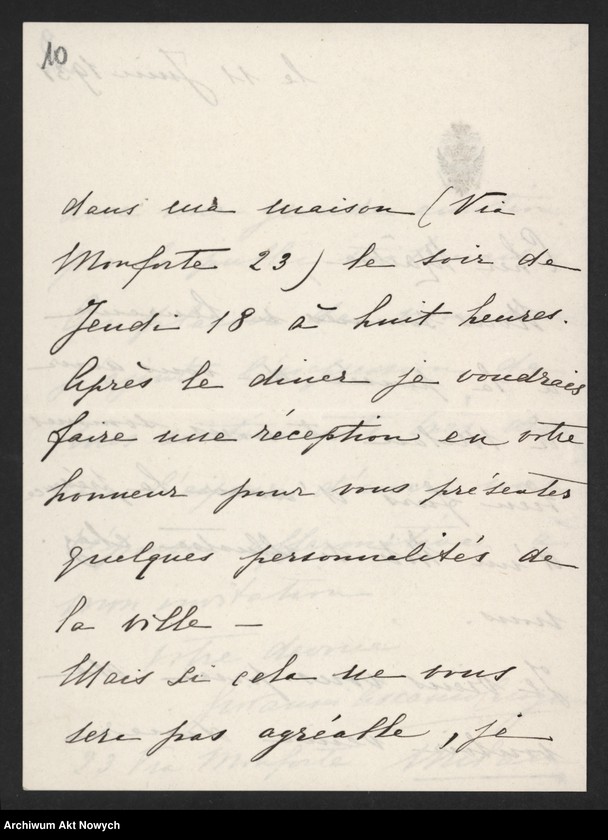 10
dans ma maison (Via
Monforte 23) le soir de
Jeudi 18 à huit heures.
Après le diner je voudrais
faire une réception en votre
honneur pour vous présenter
quelques personnalités de
la ville –
Mais si cela ne vous
sera pas agréable, je
Archiwum Akt Nowych